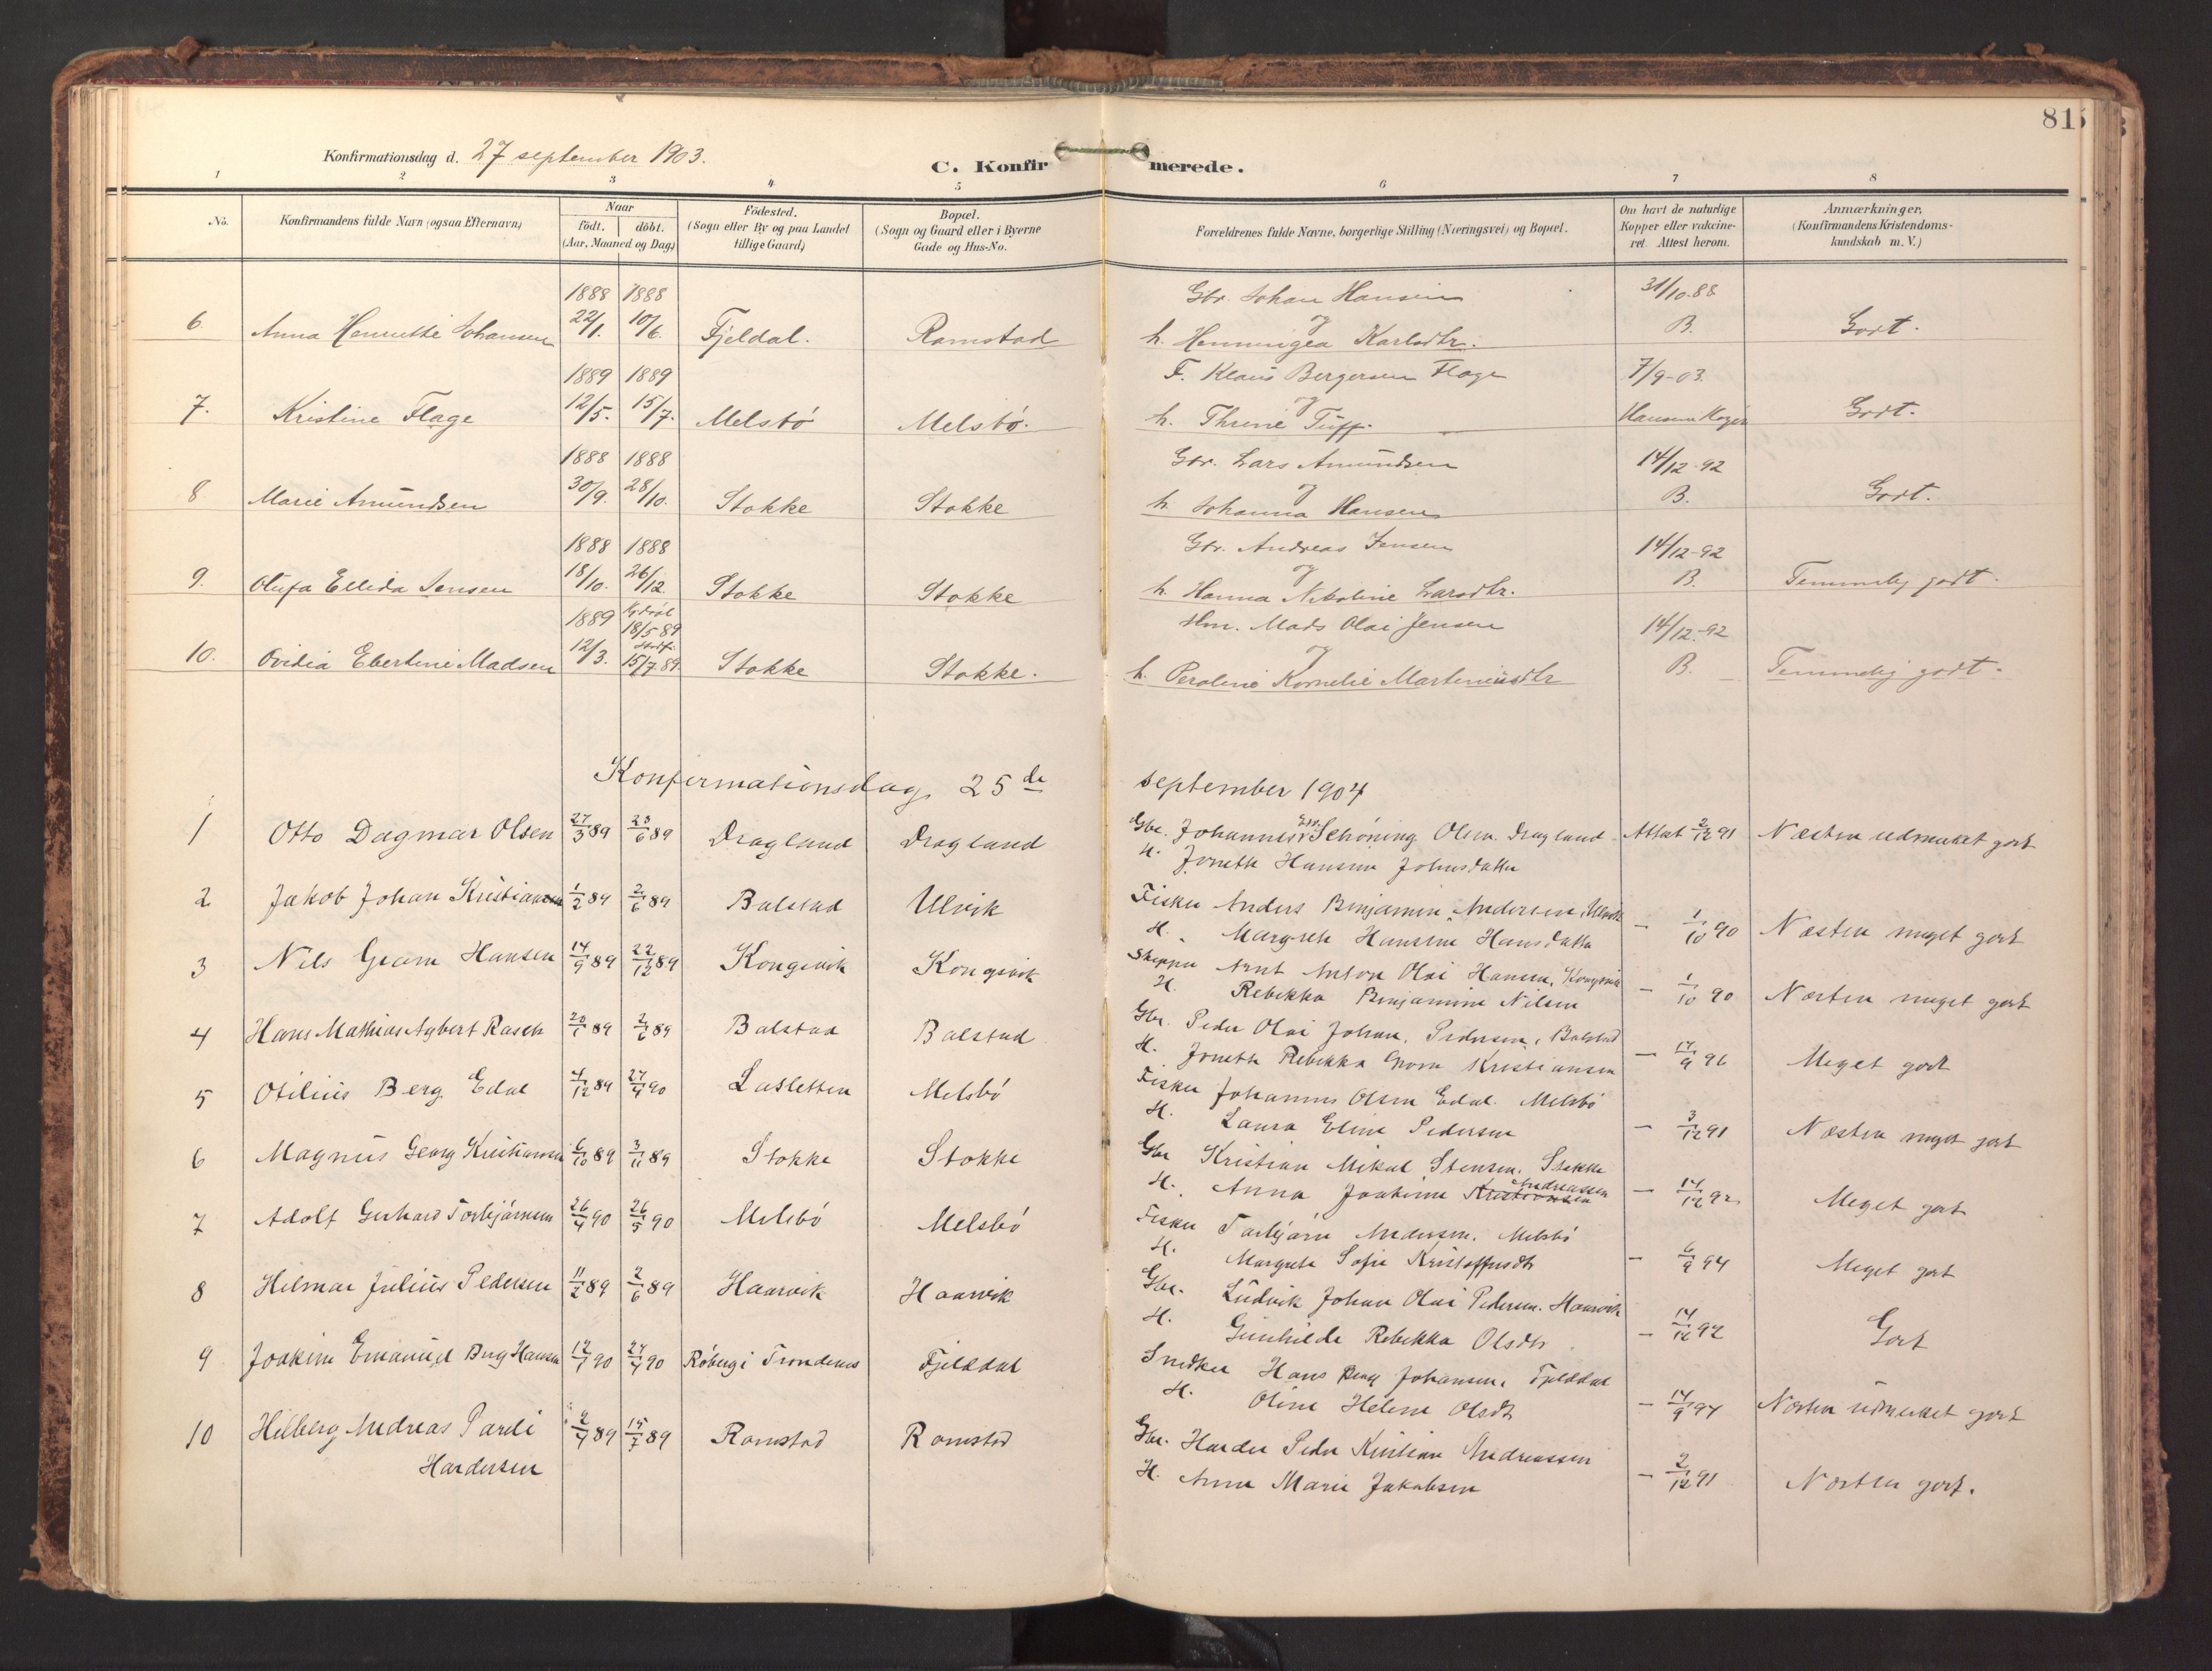 81
Konfirmationsdag d. 27 september 1903.
C. Konfirmerede.
1 2 3 4 5 6 7 8
No. Konfirmandens fulde Navn (ogsaa Efternavn) Naar födt. döbt. (Aar, Maaned og Dag) Födested. (Sogn eller By og paa Landet tillige Gaard) Bopæl. (Sogn og Gaard eller i Byerne Gade og Hus-No. Forældrenes fulde Navne, borgerlige Stilling (Næringsvei) og Bopæl. Om havt de naturlige Kopper eller vakcineret. Attest herom. Anmærkninger, (Konfirmandens Kristendomskundskab m. V.)
1888 1888 Gbr. Johan Hansen 31/10.88
6. Anna Henriette Johansen 22/1. 10/6. Fjeldal. Ramstad og h. Henningea Karlsdtr. B. Godt.
1889 1889 F. Klaus Bergersen Flage 7/9-03.
7. Kristine Flage 12/5. 15/7. Melsbö Melsbö. og h. Thrine Tuff. Hansen Godt.
1888 1888 Gbr. Lars Amundsen 14/12-92
8 Marie Amundsen 30/9. 28/10. Stokke Stokke og h. Johanna Hansen B. Godt.
1888 1888 Gbr. Andreas Jensen 14/12-92
9. Olufa Ellida Jensen 18/10. 26/12 Stokke Stokke og h. Hanna Nikoline Larsdtr. B. Temmelig godt.
1889 18/5 89 Hm. Mads Olai Jensen 14/12-92
10. Ovidia Ebertine Madsen 12/3. 15/7 89 Stokke Stokke. og h. Peroline Kornelie Marteniusdtr B. Temmelig godt.
Konfirmationsdag 25de september 1904
1 Otto Dagmar Olsen 27/3 89 23/6 89 Dragland Dragland Gbr. Johannes Schöning Olsen. Dragland Attest 2/12 91 Næsten udmerket godt
H. Jonette Hansine Johnsdatter
2 Jakob Johan Kristiansen 1/2 89 2/6 89 Balstad Ulvik Fisker Anders Benjamin Andersen, Ulvik - 1/10 90 Næsten meget godt
H. Margrete Hansine Hansdatter
3 Nils Georn Hansen 14/9 89 22/12 89 Kongsvik Kongsvik Skipper Arnt Anton Olai Hansen, Kongsvik - 1/10 90 Næsten meget godt
H. Rebekka Benjamine Nilsen
4 Hans Mathias Agbert Rasch 20/1 89 2/6 89 Balstad Balstad Gbr. Peder Olai Johan Pedersen, Balstad - 14/9 96 Meget godt
H. Jonette Rebekka Kristiansen
5 Otilius Berg Edal 4/12 89 27/4 90 Lasletten Melsbö Fisker Johannes Olsen Edal. Melsbö - 3/12 91 Næsten meget godt
H. Laura Eline Pedersen
6 Magnus Georg Kristiansen 6/10 89 3/11 89 Stokke Stokke Gbr Kristian Mikal Stensen. Stokke - 14/12 92 Meget godt
H. Anna Joakime Kristiansen Andreassen
7 Adolf Gerhard Torbjörnsen 26/4 90 26/5 90 Melsbö Melsbö Fisker Torbjörn Andersen. Melsbö - 6/9 94 Meget godt
H. Margrete Sofie Kristoffersdtr
8 Hilmar Julius Pedersen 11/2 89 2/6 89 Haarvik Haarvik Gbr. Ludvik Johan Olai Pedersen. Haarvik - 14/12 92 Godt
H. Gunhilde Rebekka Olsdtr
9 Joakim Emanuel Berg Hansen 12/1 90 27/4 90 Röberg i Trondenes Fjelddal Snedker Hans Berg Johansen, Fjelddal - 14/9 94 Næsten udmerket godt
H. Oline Helene Olsdtr
10 Hilberg Andreas Pareli 2/4 89 15/7 89 Ramstad Ramstad Gbr. Harder Peder Kristian Andreassen - 2/12 91 Næsten godt.
Hardersen H. Anne Marie Jakobsen